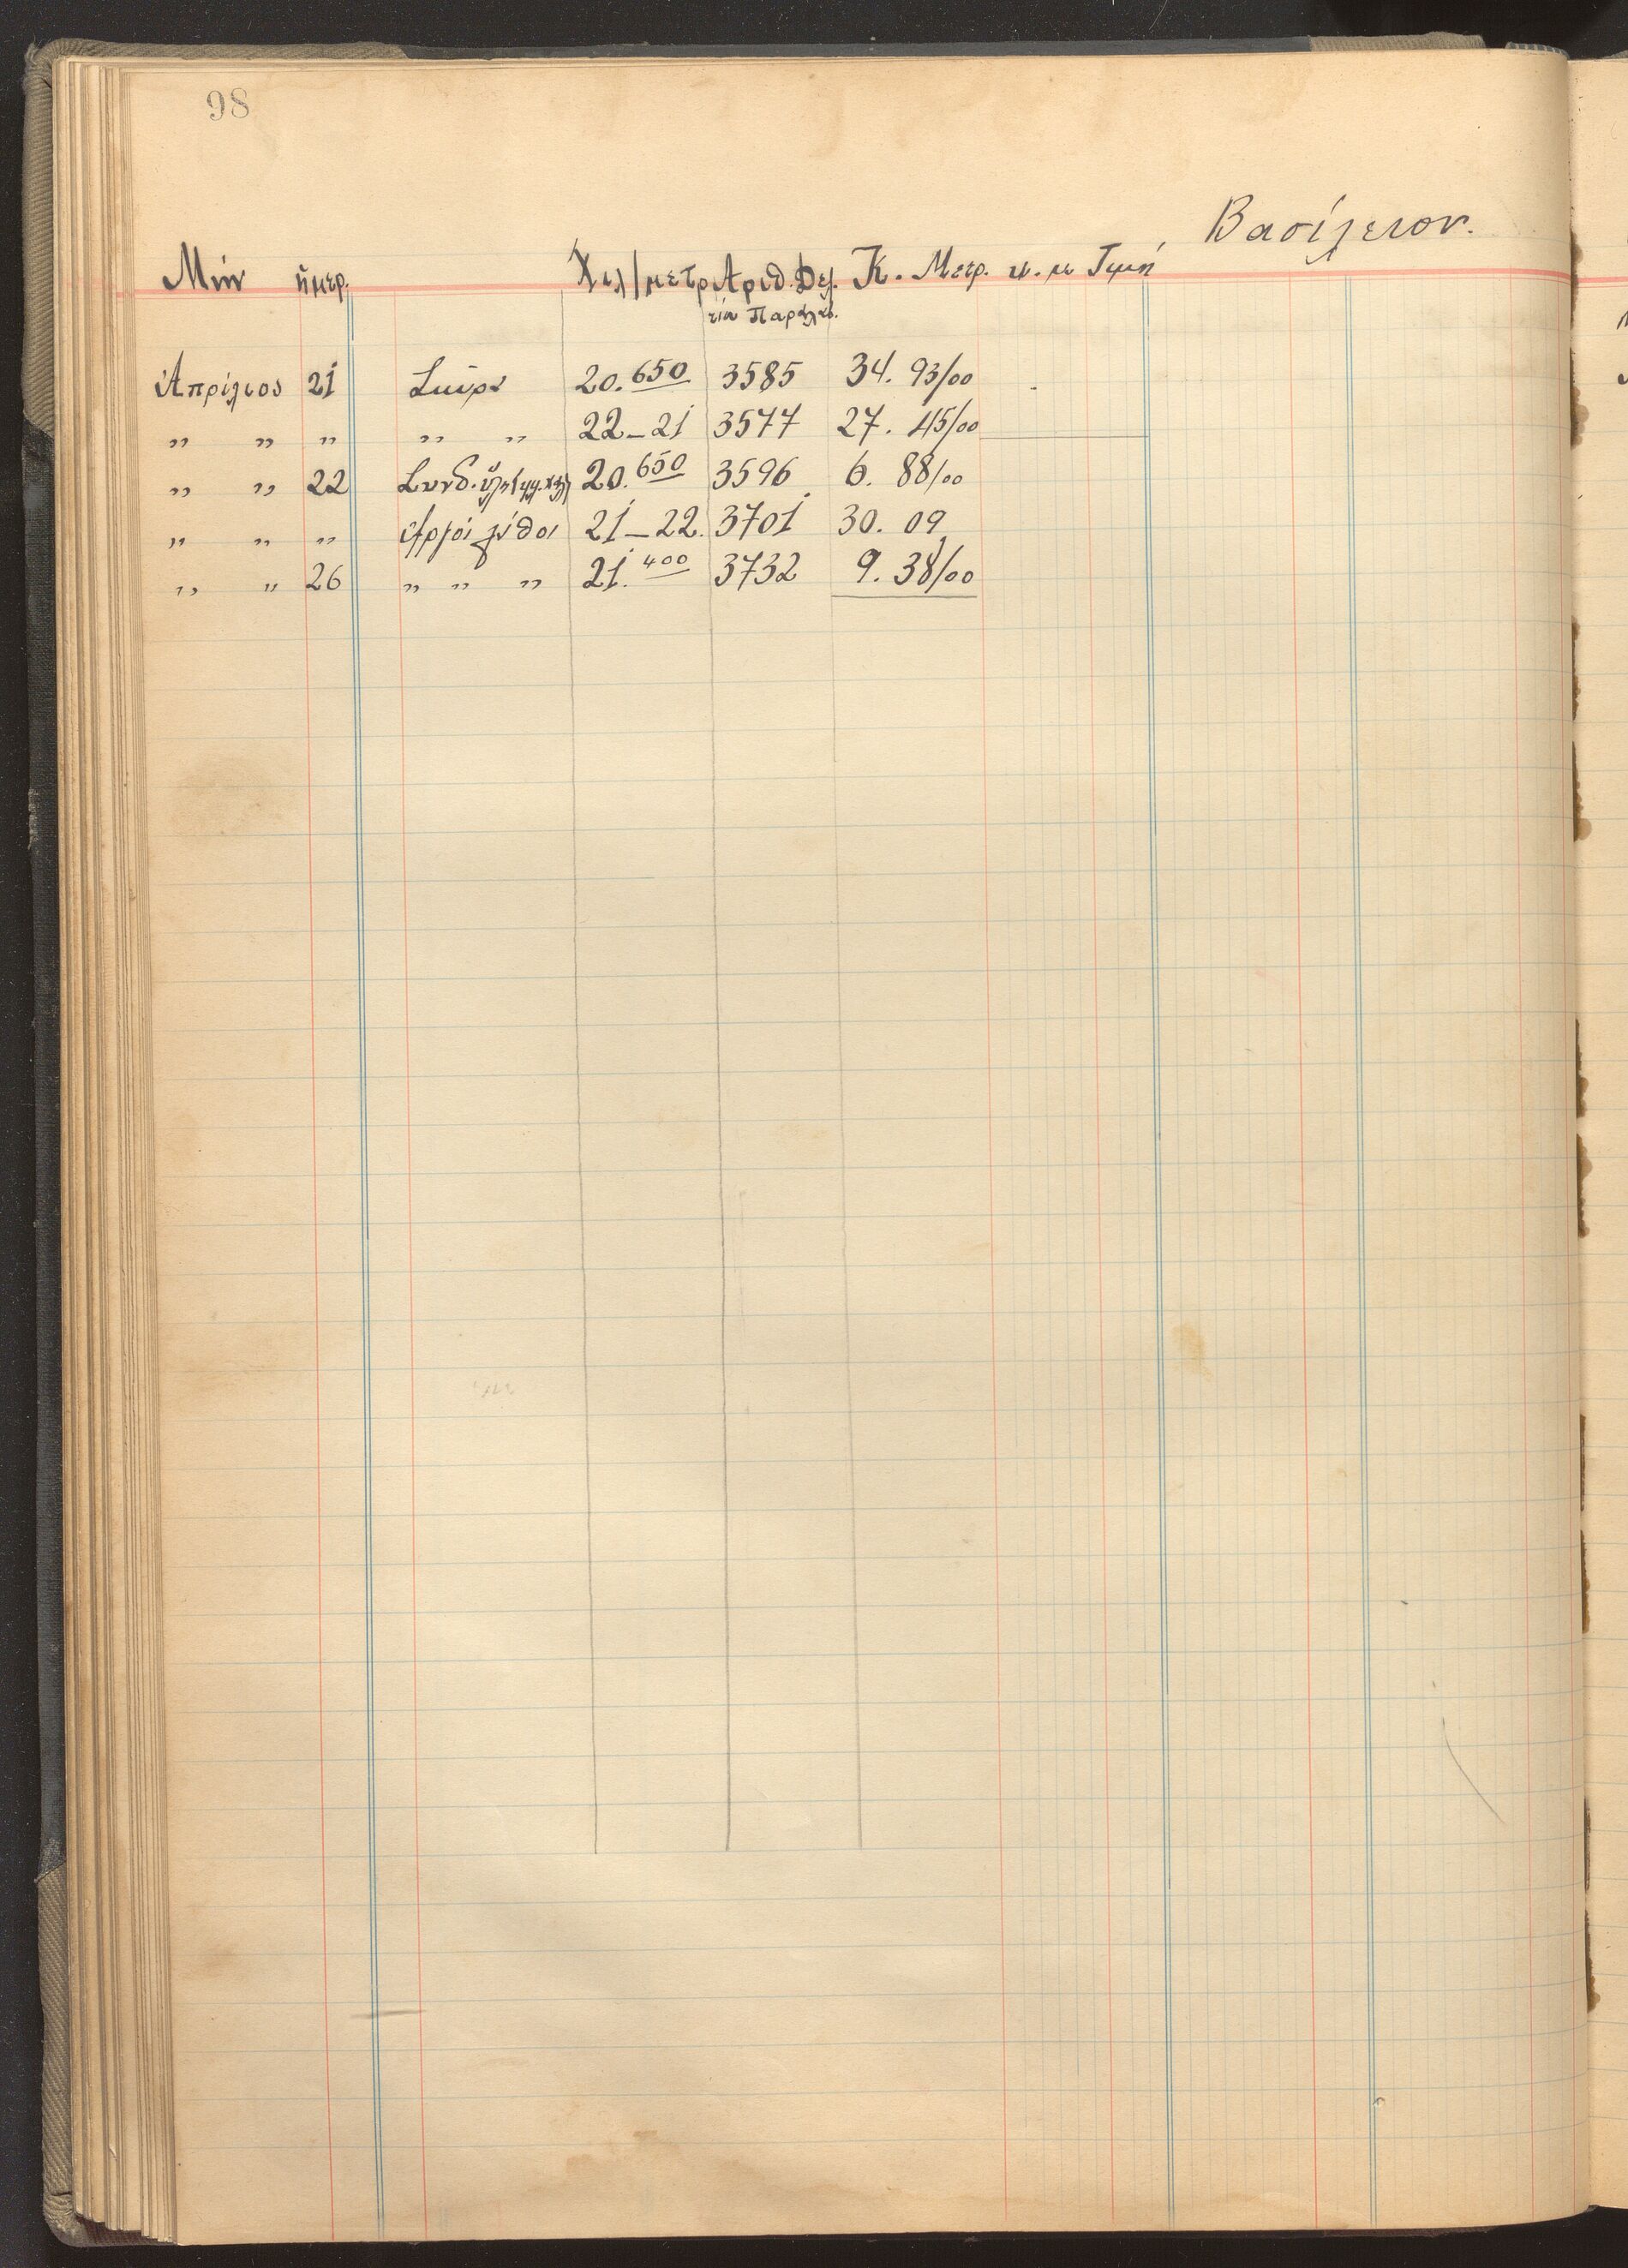 98
Βασίλειον.
Μήν ἡμερ. Χιλ/μετρ Αριθ. Δελ. Κ. Μετρ. κ. μ Τιμή
τίο Παραλαβ.
Ἀπρίλιος 21 Σκύρα 20.650 3585 34. 93/00
,, ,, ,, ,, ,, 22-21 3577 27. 45/00
,, ,, 22 Συνδ. ὕλη 20.650 3596 6. 88/00
,, ,, ,, Ἀργοί λίθοι 21-22. 3701 30. 09
,, ,, 26 ,, ,, ,, 21.400 3732 9. 38/00